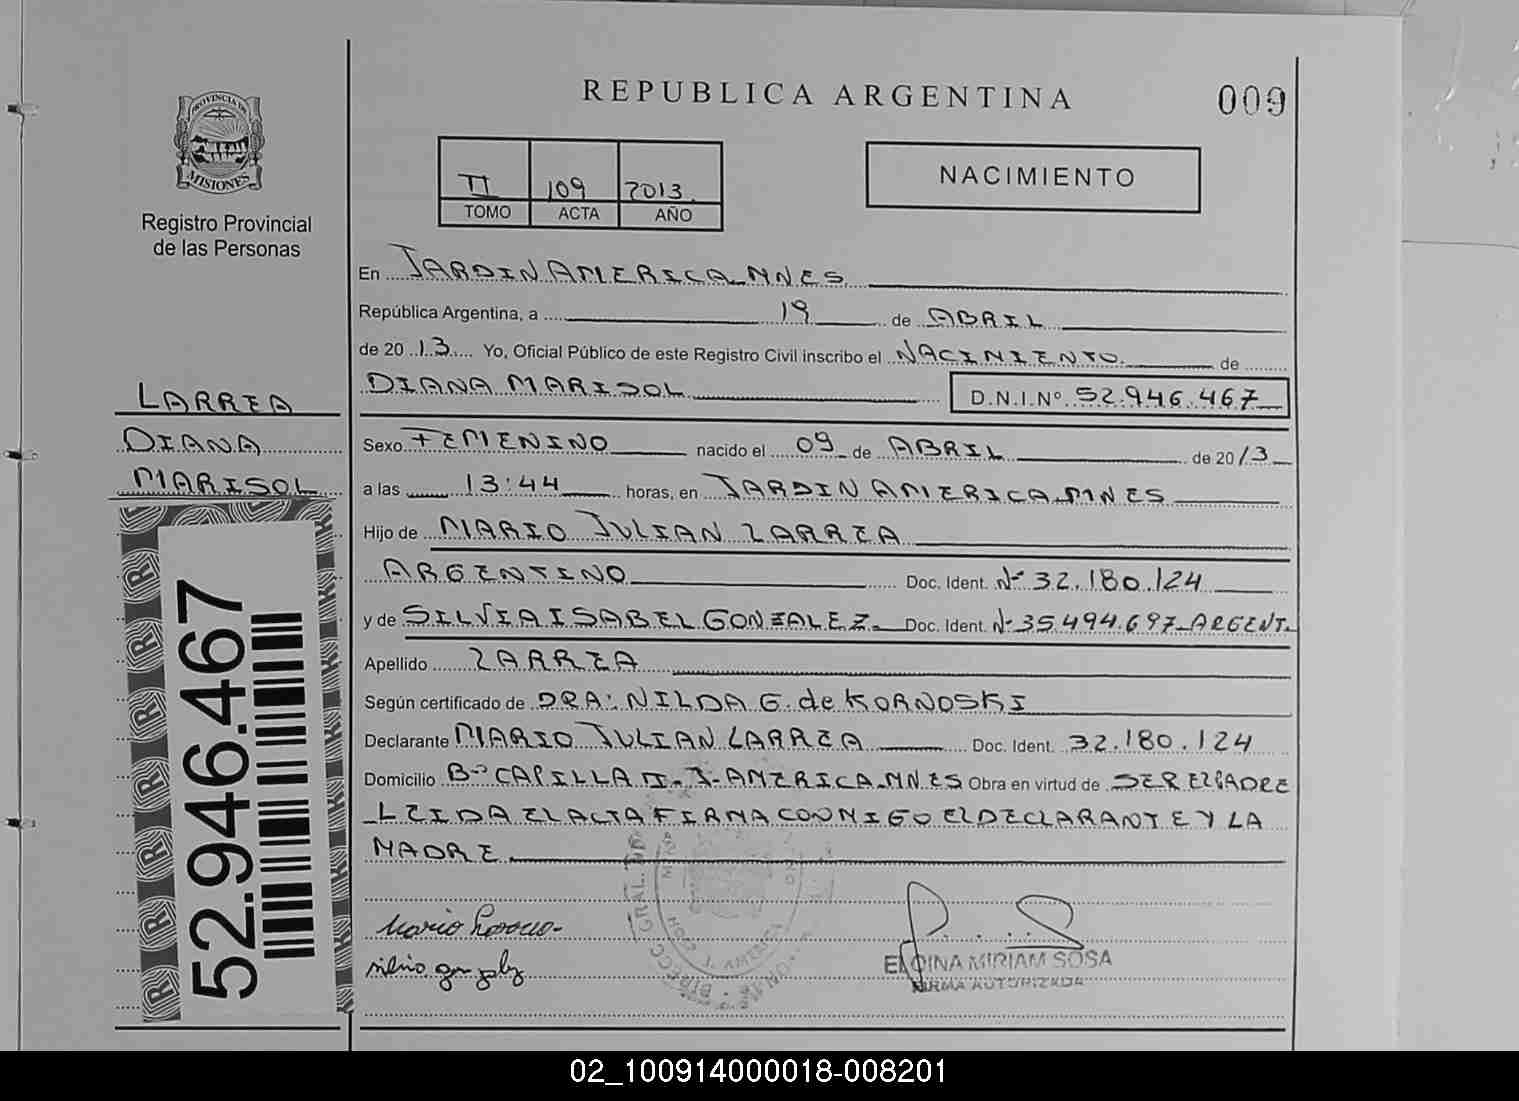 REPUBLICA ARGENTINA
009
PROVINCIA DE
MISIONES
Registro Provincial
de las Personas
II 109 2013.
TOMO ACTA AÑO
NACIMIENTO
En JARDIN AMERICA MNES
República Argentina, a 19 de ABRIL
de 2013 Yo, Oficial Público de este Registro Civil inscribo el NACIMIENTO de
DIANA MARISOL
D.N.I.Nº 52.946.467
LARREA
DIANA
MARISOL
Sexo FEMENINO nacido el 09 de ABRIL de 2013
a las 13:44 horas, en JARDIN AMERICA MNES
Hijo de MARIO JULIAN LARREA
ARGENTINO Doc. Ident. Nº 32.180.124
y de SILVIA ISABEL GONZALEZ Doc. Ident. Nº 35.494.697 ARGENT.
Apellido LARREA
Según certificado de DRA: NILDA G. de KORNOSKI
Declarante MARIO JULIAN LARREA Doc. Ident. 32.180.124
Domicilio Bº CAPILLA II. J. AMERICA MNES Obra en virtud de SER EL PADRE
LEIDA EL ACTA FIRMA CONMIGO EL DECLARANTE Y LA
MADRE
52.946.467
ELOINA MIRIAM SOSA
FIRMA AUTORIZADA
02_100914000018-008201